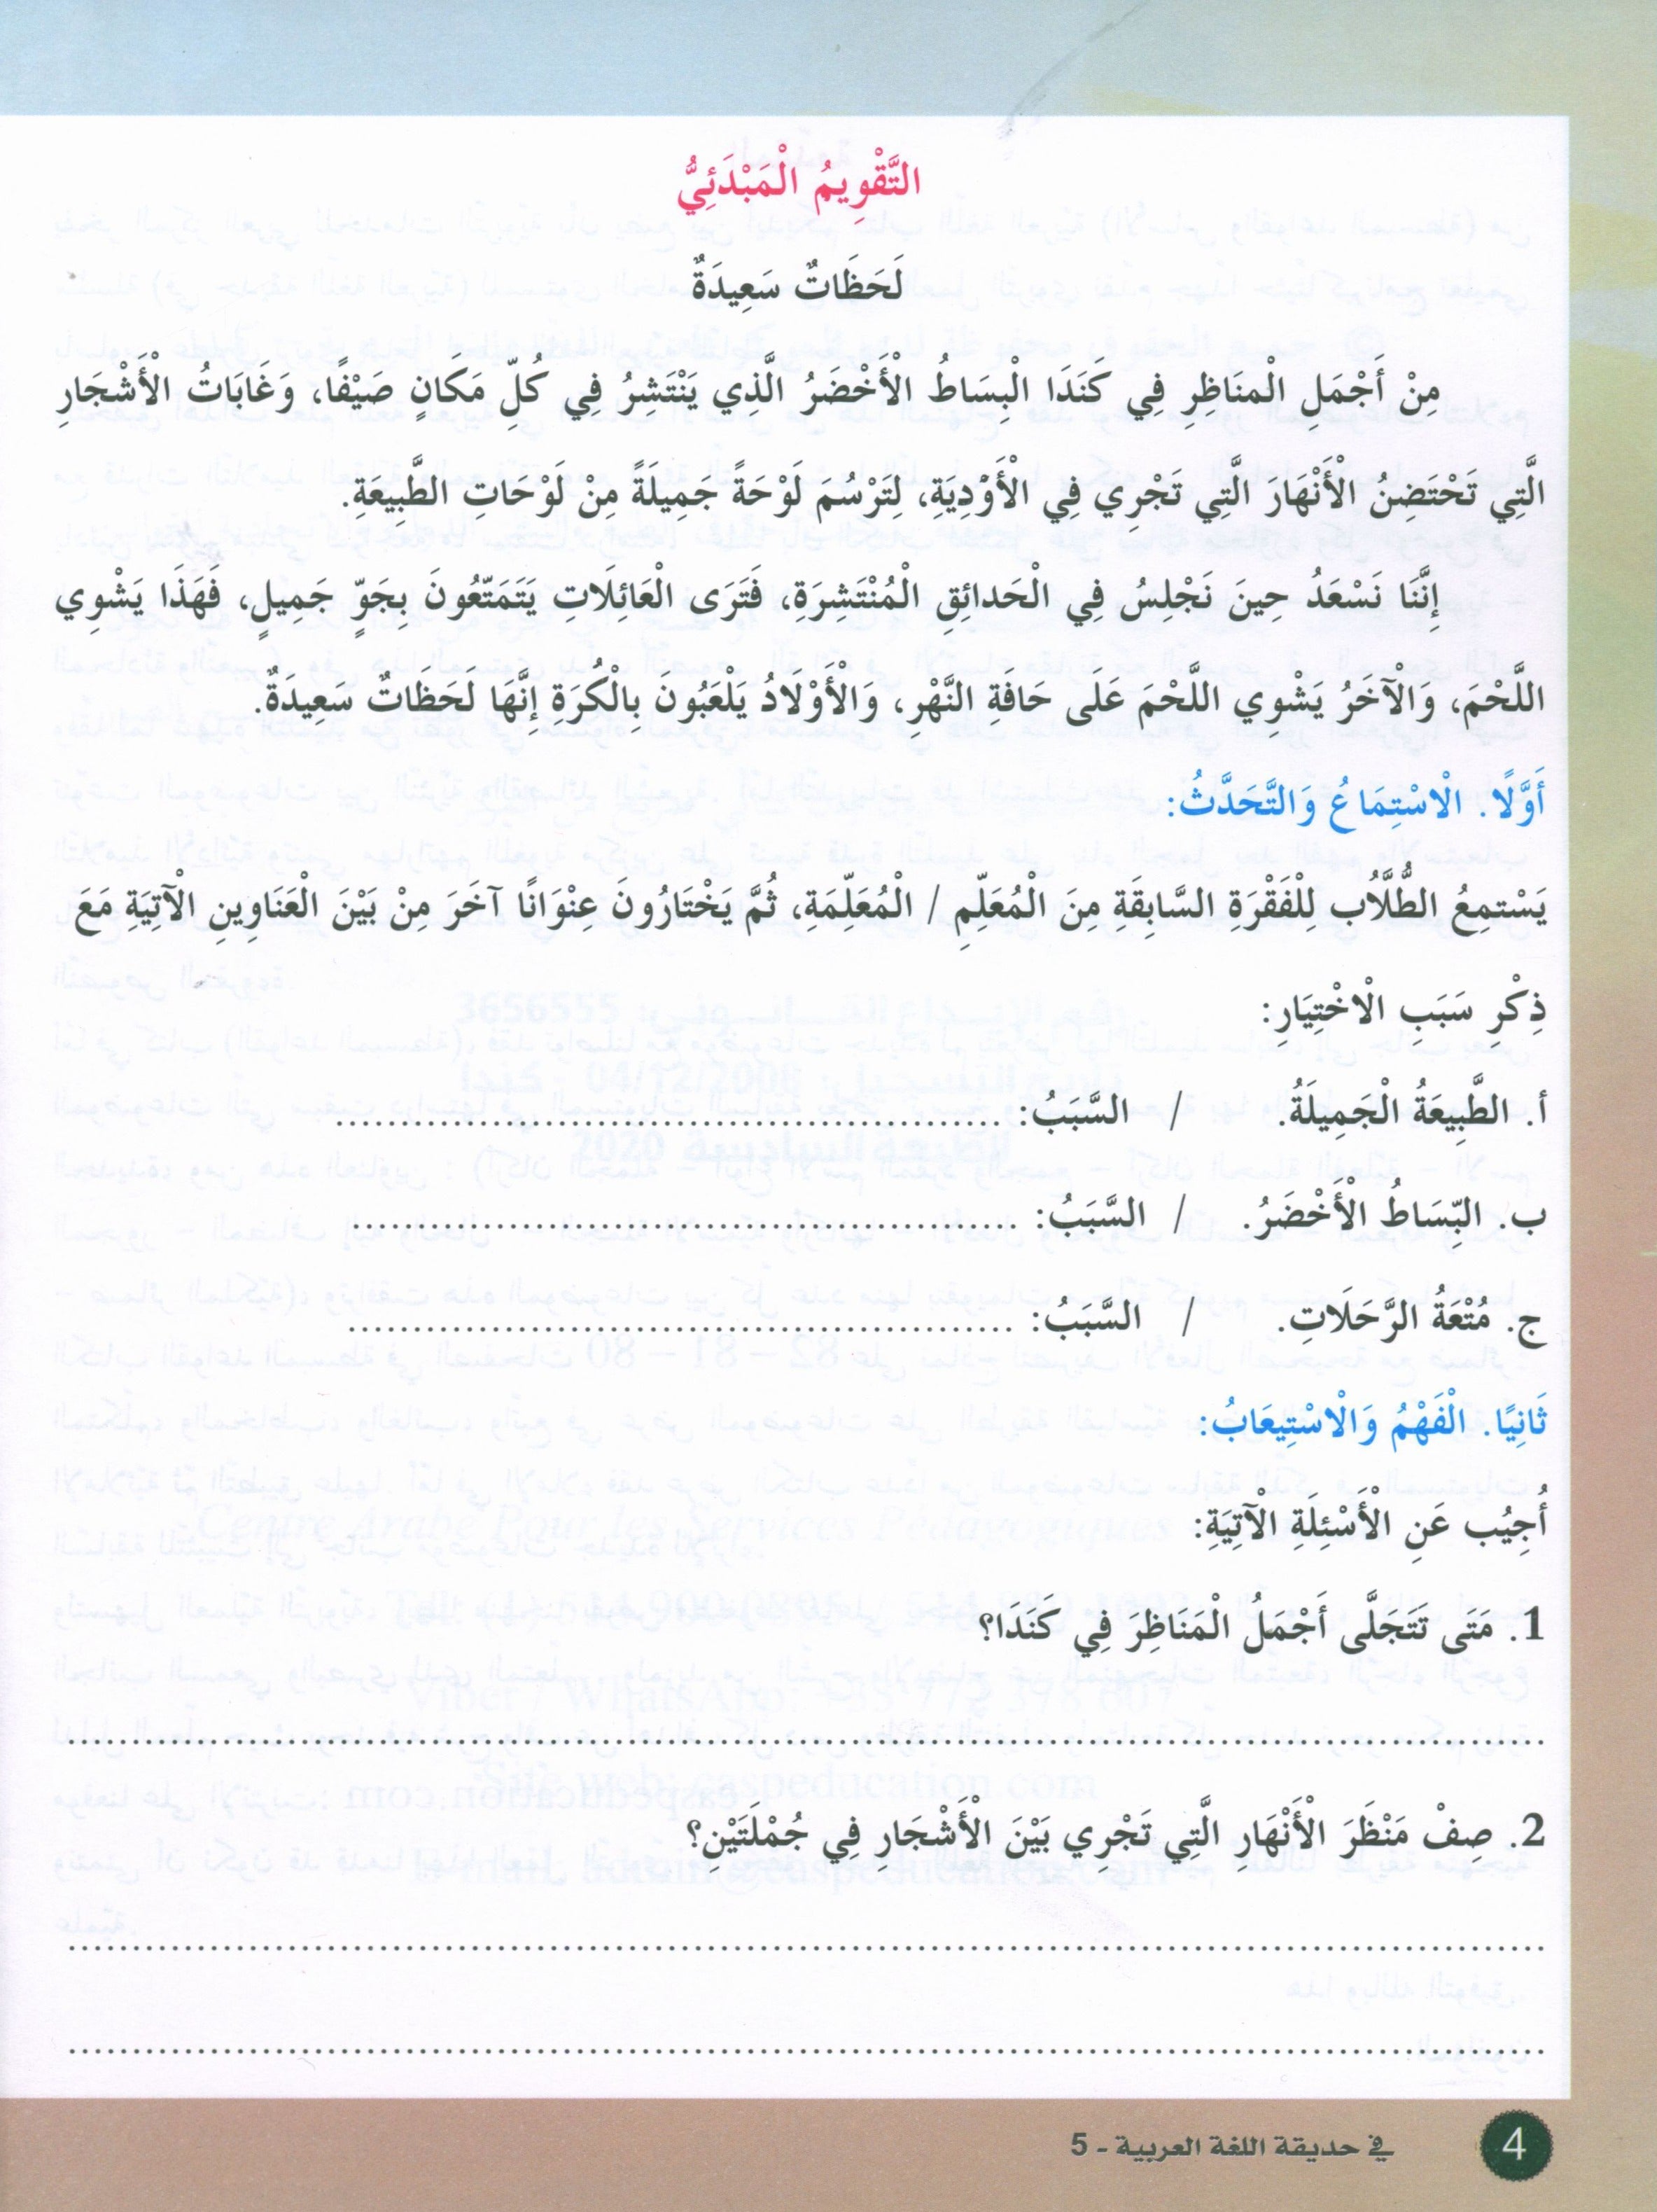 التَّقْوِيمُ الْمَبْدَئِيُّ
لَحَظَاتٌ سَعِيدَةٌ
مِنْ أَجْمَلِ الْمنَاظِرِ فِي كَنَدَا الْبِسَاطُ الْأَخْضَرُ الَّذِي يَنْتَشِرُ فِي كُلِّ مَكَانٍ صَيْفًا، وَغَابَاتُ الْأَشْجَارِ
الَّتِي تَحْتَضِنُ الْأَنْهَارَ الَّتِي تَجْرِي فِي الْأَوْدِيَةِ، لِتَرْسُمَ لَوْحَةً جَمِيلَةً مِنْ لَوْحَاتِ الطَّبِيعَةِ.
إِنَّنَا نَسْعَدُ حِينَ نَجْلِسُ فِي الْحَدائِقِ الْمُنْتَشِرَةِ، فَتَرَى الْعَائِلَاتِ يَتَمَتّعُونَ بِجَوٍّ جَمِيلٍ، فَهَذَا يَشْوِي
اللَّحْمَ، وَالْآخَرُ يَشْوِي اللَّحْمَ عَلَى حَافَةِ النَّهْرِ، وَالْأَوْلَادُ يَلْعَبُونَ بِالْكُرَةِ إِنَّهَا لَحَظَاتٌ سَعِيدَةٌ.
أَوَّلًا. الْاسْتِمَاعُ وَالتَّحَدَّثُ:
يَسْتمِعُ الطُّلَّابُ لِلْفَقْرَةِ السَّابِقَةِ مِنَ الْمُعَلِّمِ / الْمُعَلِّمَةِ، ثُمَّ يَخْتَارُونَ عِنْوَانًا آخَرَ مِنْ بَيْنَ الْعَنَاوِينِ الْآتِيَةِ مَعَ
ذِكْرِ سَبَبِ الْاخْتِيَارِ:
أ. الطَّبِيعَةُ الْجَمِيلَةُ. / السَّبَبُ: ......................................................
ب. البِّسَاطُ الْأَخْضَرُ. / السَّبَبُ: ......................................................
ج. مُتْعَةُ الرَّحَلَاتِ. / السَّبَبُ: ......................................................
ثَانِيًا. الْفَهْمُ وَالْاسْتِيعَابُ:
أُجِيُب عَنِ الْأَسْئِلَةِ الْآتِيَةِ:
1. مَتَى تَتَجَلَّى أَجْمَلُ الْمَنَاظِرَ فِي كَنَدَا؟
......................................................
2. صِفْ مَنْظَرَ الْأَنْهَارِ الَّتِي تَجْرِي بَيْنَ الْأَشْجَارِ فِي جُمْلَتَيْنِ؟
......................................................
......................................................
4 في حديقة اللغة العربية - 5